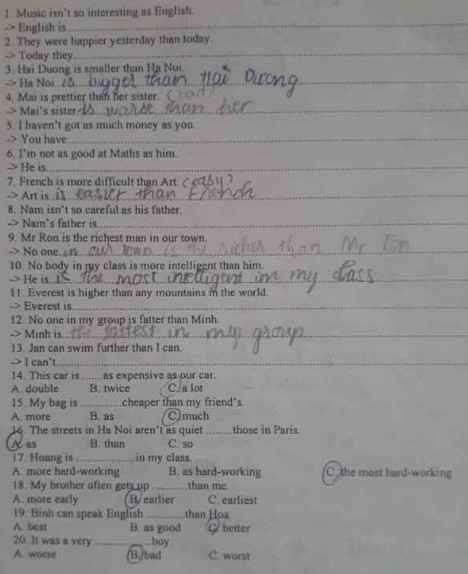 1. Music isn't so interesting as English.
-> English is
2. They were happier yesterday than today.
-> Today they
3. Hai Duong is smaller than Ha Noi.
-> Ha Noi is bigger than Hai Duong
4. Mai is prettier than her sister.
-> Mai's sister is worse than her
5. I haven't got as much money as you.
-> You have
6. I'm not as good at Maths as him.
-> He is
7. French is more difficult than Art. (easy)
-> Art is is easier than French
8. Nam isn't so careful as his father.
-> Nam's father is
9. Mr Ron is the richest man in our town.
-> No one in our town is richer than Mr Ron
10. No body in my class is more intelligent than him.
-> He is is the most intelligent in my class
11. Everest is higher than any mountains in the world.
-> Everest is
12. No one in my group is fatter than Minh.
-> Minh is the fattest in my group
13. Jan can swim further than I can.
-> I can't
14. This car is ........ as expensive as our car.
A. double B. twice C. a lot
15. My bag is ............ cheaper than my friend's.
A. more B. as C. much
16. The streets in Ha Noi aren't as quiet ........ those in Paris.
A. as B. than C. so
17. Hoang is ................. in my class.
A. more hard-working B. as hard-working C. the most hard-working
18. My brother often gets up .......... than me.
A. more early B. earlier C. earliest
19. Binh can speak English .......... than Hoa.
A. best B. as good C. better
20. It was a very ................. boy.
A. worse B. bad C. worst